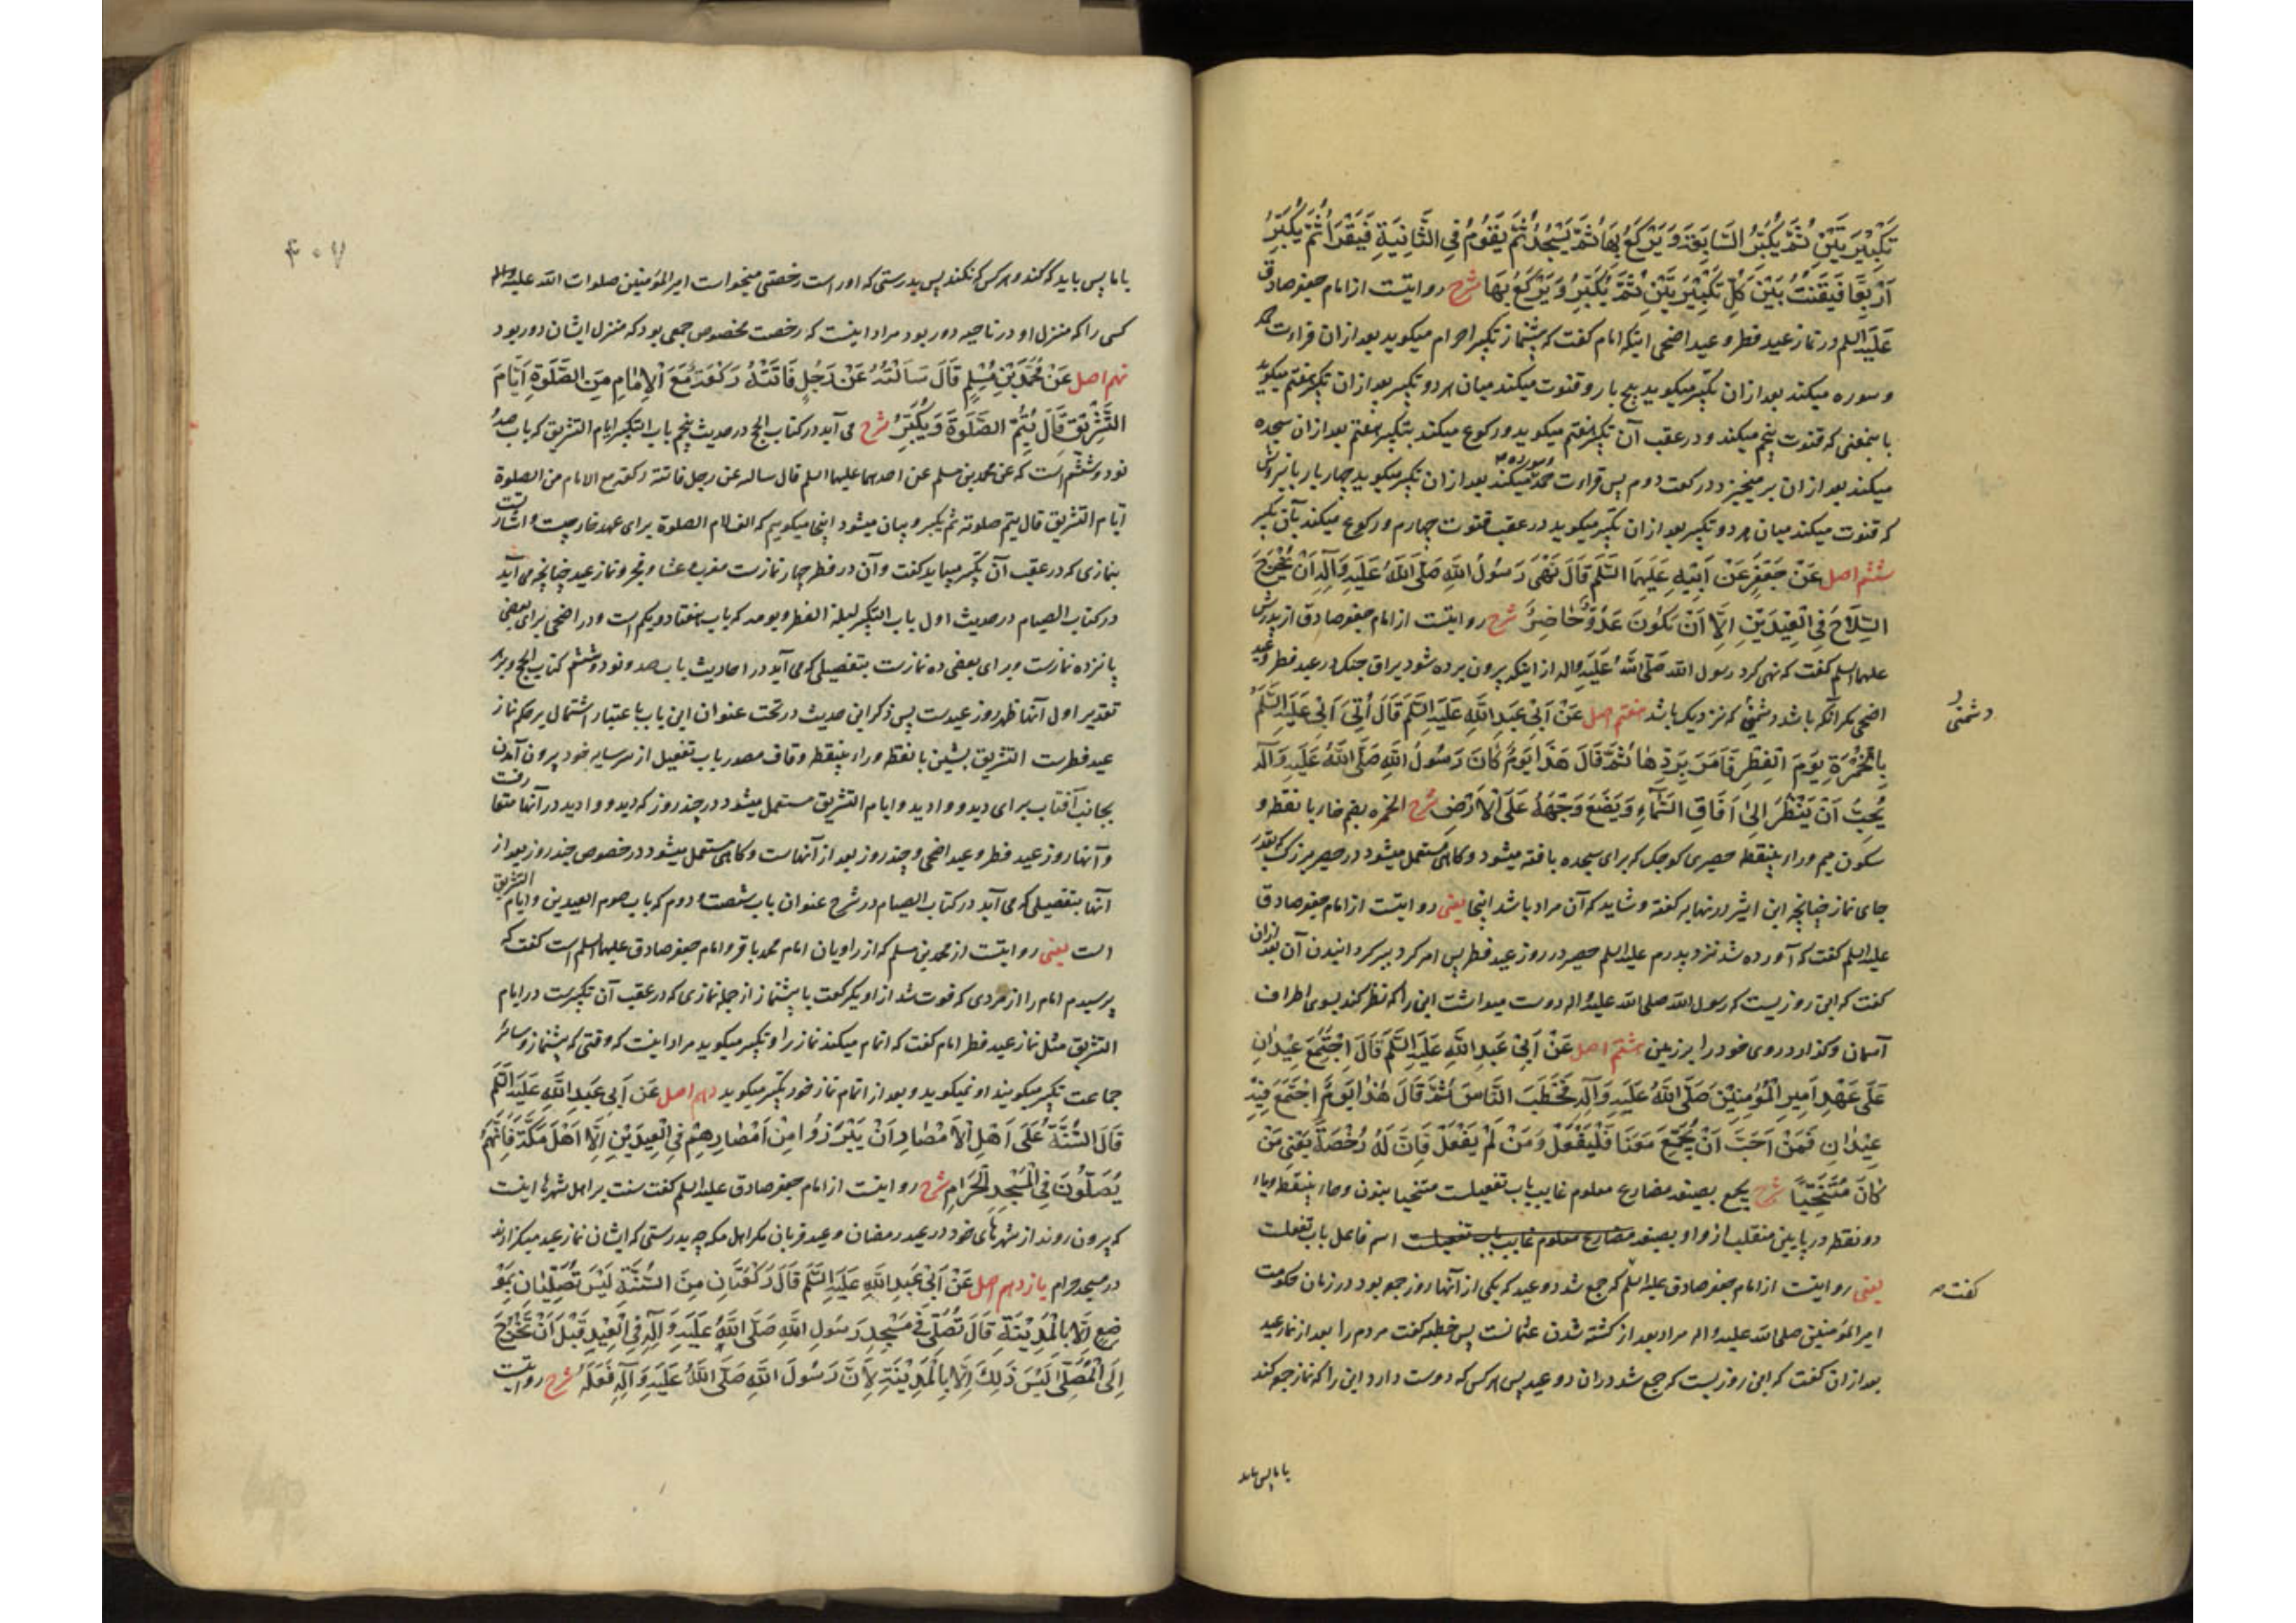 تَكْبِيْرَتَيْنِ ثُمَّ يُكَبِّرُ السَّابِعَةَ وَيَرْكَعُ بِهَا ثُمَّ يَسْجُدُ ثُمَّ يَقُومُ فِي الثَّانِيَةِ فَيَقْرَأُ ثُمَّ يُكَبِّرُ
اَرْبَعًا فَيَقْنُتُ بَيْنَ كُلِّ تَكْبِيْرَتَيْنِ ثُمَّ يُكَبِّرُ وَيَرْكَعُ بِهَا شرح روایتست از امام جعفر صادق
عَلَيْهِ السلم در نماز عید فطر و عید اضحی اینکه امام گفت که پیشنماز تکبیر احرام میگوید بعد از ان قراءت حمد
و سوره میکند بعد از ان تکبیر میگوید پنج بار و قنوت میکند میان هر دو تکبیر بعد از ان تکبیر هفتم میگوید
باینمعنی که قنوت پنجم میکند و در عقب آن تکبیر هفتم میگوید و رکوع میکند بتکبیر هفتم بعد از ان سجده
میکند بعد از ان برمیخیزد در رکعت دوم پس قراءت حمد و سوره میکند بعد از ان تکبیر میگوید چهار بار باین روش
که قنوت میکند میان هر دو تکبیر بعد از ان تکبیر میگوید در عقب قنوت چهارم و رکوع میکند بآن تکبیر
ششم اصل عَنْ جَعْفَرٍ عَنْ اَبِيْهِ عَلَيْهِمَا السَّلَمُ قَالَ نَهَى رَسُولُ اللّهِ صَلَّى اللّهُ عَلَيْهِ وَآلِهِ اَنْ يُخْرَجَ
السِّلَاحُ فِي الْعِيْدَيْنِ اِلَّا اَنْ يَكُونَ عَدُوٌّ حَاضِرٌ شرح روایتست از امام جعفر صادق از پدرش
علیهما السلم گفت که نهی کرد رسول اللّه صَلَّى اللّهُ عَلَيْهِ وَاله از اینکه بیرون برده شود یراق جنک در عید فطر و عید
اضحی مکر آنکه باشد دشمنی که نزدیک باشد هفتم اصل عَنْ اَبِيْ عَبْدِ اللّهِ عَلَيْهِ السَّلَمُ قَالَ اُتِيَ اَبِيْ عَلَيْهِ السَّلَمُ
دشمنی
بِالْخُمْرَةِ يَوْمَ الْفِطْرِ فَاَمَرَ بِرَدِّهَا ثُمَّ قَالَ هَذَا يَوْمٌ كَانَ رَسُولُ اللّهِ صَلَّى اللّهُ عَلَيْهِ وَآلِهِ
يُحِبُّ اَنْ يَنْظُرَ اِلَى اٰفَاقِ السَّمَاءِ وَيَضَعَ وَجْهَهُ عَلَى الْاَرْضِ شرح الخمره بضم خاء با نقطه و
سکون میم و راء بینقطه حصیری کوچک که برای سجده بافته میشود و کاهی مستعمل میشود در حصیر بزرک بقدر
جای نماز چنانچه ابن اثیر در نهایه گفته و شاید که آن مراد باشد اینجا یعنی روایتست از امام جعفر صادق
علیه السلم گفت که آورده شد نزد پدرم علیه السلم حصیر در روز عید فطر پس امر کرد ببرگردانیدن آن بعد از ان
گفت که این روزیست که رسول اللّه صلی اللّه علیه و اله دوست میداشت این را که نظر کند بسوی اطراف
آسمان و گذارد روی خود را بر زمین هشتم اصل عَنْ اَبِيْ عَبْدِ اللّهِ عَلَيْهِ السَّلَمُ قَالَ اِجْتَمَعَ عِيْدَانِ
عَلَى عَهْدِ اَمِيرِ الْمُؤْمِنِيْنَ صَلَّى اللّهُ عَلَيْهِ وَآلِهِ فَخَطَبَ النَّاسَ ثُمَّ قَالَ هٰذَا يَوْمٌ اجْتَمَعَ فِيْهِ
عِيْدَانِ فَمَنْ اَحَبَّ اَنْ يُجَمِّعَ مَعَنَا فَلْيَفْعَلْ وَمَنْ لَمْ يَفْعَلْ فَاِنَّ لَهُ رُخْصَةً يَعْنِي مَنْ
كَانَ مُتَنَحِّيًا شرح یجمع بصیغه مضارع معلوم غایب باب تفعیلست متنحیا بنون و حاء بینقطه و یاء
دو نقطه در پایین منقلب از واو بصیغه مضارع معلوم غایب باب تفعیلست اسم فاعل باب تفعلست
یعنی روایتست از امام جعفر صادق علیه السلم که جمع شد دو عید که یکی از آنها روز جمعه بود در زمان حکومت
گفت
امیر المؤمنین صلی اللّه علیه و اله مراد بعد از کشته شدن عثمانست پس خطبه گفت مردم را بعد از نماز عید
بعد از ان گفت که این روزیست که جمع شد دران دو عید پس هر کس که دوست دارد این را که نماز جمعه کند
با ما پس باید
۴۰۷
با ما پس باید که کند و هر کس که نکند پس بدرستی که اوراست رخصتی میخواست امیر المؤمنین صلوات اللّه علیه و اله
کسی را که منزل او در ناحیه دور بود مراد اینست که رخصت مخصوص جمعی بود که منزل ایشان دور بود
نهم اصل عَنْ مُحَمَّدِ بْنِ مُسْلِمٍ قَالَ سَاَلْتُهُ عَنْ رَجُلٍ فَاتَتْهُ رَكْعَةٌ مَعَ الْاِمَامِ مِنَ الصَّلٰوةِ اَيَّامَ
التَّشْرِيْقِ قَالَ يُتِمُّ الصَّلٰوةَ وَيُكَبِّرُ شرح می آید در کتاب الحج در حدیث پنجم باب التکبیر ایام التشریق که باب صد و
نود و ششم است که عن محمد بن مسلم عن احدهما علیهما السلم قال سالته عن رجل فاتته رکعة مع الامام من الصلوة
ایام التشریق قال یتم صلوته ثم یکبر و بیان میشود اینجا میگوییم که الف لام الصلوة برای عهد خارجیست و اشارتست
بنمازی که در عقب آن تکبیر میباید گفت و آن در فطر چهار نمازست مغرب و عشا و فجر و نماز عید چنانچه می آید
در کتاب الصیام در حدیث اول باب التکبیر لیلة الفطر و یومه که باب هفتاد و یکم است و در اضحی برای بعضی
پانزده نمازست و برای بعضی ده نمازست بتفصیلی که می آید در احادیث باب صد و نود و ششم کتاب الحج و بر هر
تقدیر اول آنها ظهر روز عیدست پس ذکر این حدیث در تحت عنوان این باب با عتبار اشتمال بر حکم نماز
عید فطرست التشریق بشین با نقطه و راء بینقطه و قاف مصدر باب تفعیل از سر سایه خود بیرون آمدن
بجانب آفتاب برای دید و وادید و ایام التشریق مستعمل میشود در چند روز که دید و وادید در آنها متعارفست
و آنها روز عید فطر و عید اضحی و چند روز بعد از آنهاست و کاهی مستعمل میشود در خصوص چند روز بعد از
آنها بتفصیلی که می آید در کتاب الصیام در شرح عنوان باب شصت و دوم که باب صوم العیدین و ایام التشریق
است یعنی روایتست از محمد بن مسلم که از راویان امام محمد باقر و امام جعفر صادق علیهما السلم است گفت که
پرسیدم امام را از مردی که فوت شد از او یک رکعت با پیشنماز از جمله نمازی که در عقب آن تکبیرست در ایام
التشریق مثل نماز عید فطر امام گفت که اتمام میکند نماز را و تکبیر میگوید مراد اینست که وقتی که پیشنماز و سائر
جماعت تکبیر میگویند او نمیگوید و بعد از اتمام نماز خود تکبیر میگوید دهم اصل عَنْ اَبِي عَبْدِ اللّهِ عَلَيْهِ السَّلَمُ
قَالَ السُّنَّةُ عَلَى اَهْلِ الْاَمْصَارِ اَنْ يَبْرُزُوا مِنْ اَمْصَارِهِمْ فِي الْعِيدَيْنِ اِلَّا اَهْلَ مَكَّةَ فَاِنَّهُمْ
يُصَلُّونَ فِي الْمَسْجِدِ الْحَرَامِ شرح روایتست از امام جعفر صادق علیه السلم گفت سنت بر اهل شهرها اینست
که بیرون روند از شهرهای خود در عید رمضان و عید قربان مکر اهل مکه چه بدرستی که ایشان نماز عید میگزارند
در مسجد حرام یازدهم اصل عَنْ اَبِيْ عَبْدِ اللّهِ عَلَيْهِ السَّلَمُ قَالَ رَكْعَتَانِ مِنَ السُّنَّةِ لَيْسَ تُصَلَّيَانِ بِمَوْ
ضِعٍ اِلَّا بِالْمَدِيْنَةِ قَالَ تُصَلَّى فِي مَسْجِدِ رَسُولِ اللّهِ صَلَّى اللّهُ عَلَيْهِ وَآلِهِ فِي الْعِيْدِ قَبْلَ اَنْ تَخْرُجَ
اِلَى الْمُصَلَّى لَيْسَ ذٰلِكَ اِلَّا بِالْمَدِيْنَةِ لِاَنَّ رَسُولَ اللّهِ صَلَّى اللّهُ عَلَيْهِ وَآلِهِ فَعَلَهُ شرح روایتست